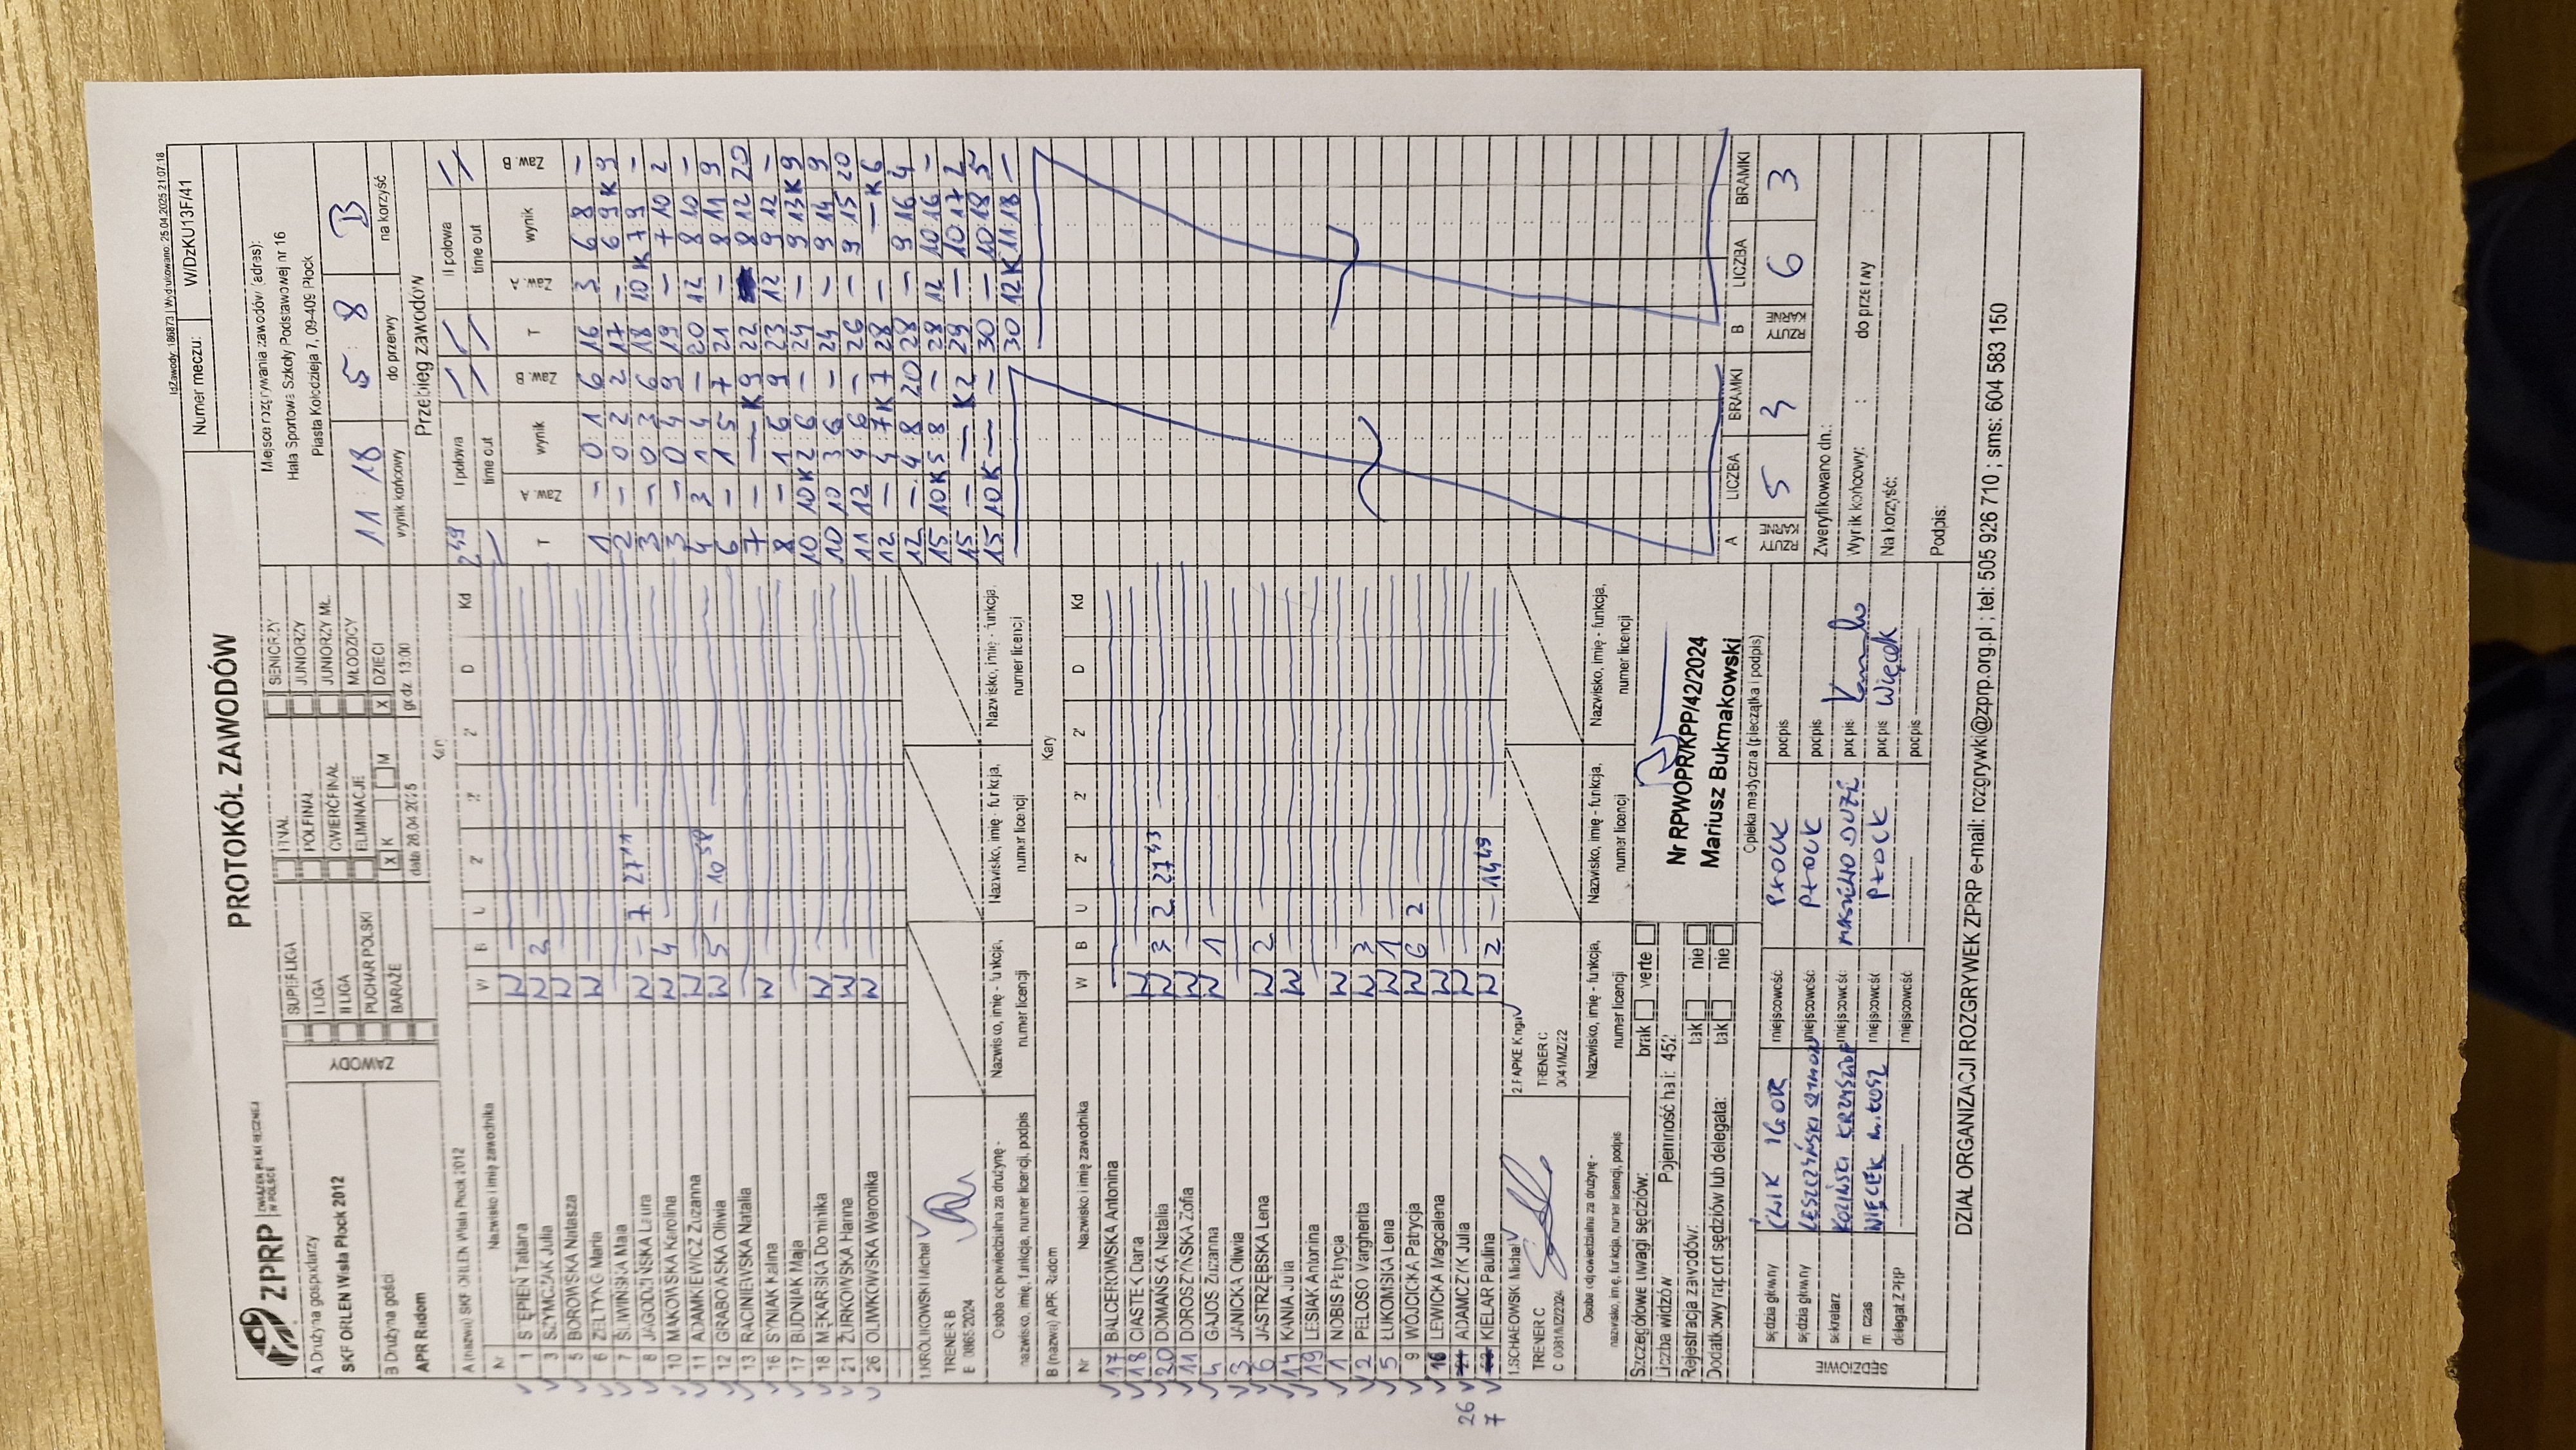 IdZawody: 186873 | Wydrukowano: 25.04.2025 21:07:18
ZPRP
ZWIĄZEK PIŁKI RĘCZNEJ
W POLSCE
PROTOKÓŁ ZAWODÓW
Numer meczu: W/DzKU13F/41
A Drużyna gospodarzy
SKF ORLEN Wisła Płock 2012
B Drużyna gości
APR Radom
ZAWODY
SUPERLIGA
I LIGA
II LIGA
PUCHAR POLSKI
BARAŻE
FINAŁ
PÓŁFINAŁ
ĆWIERĆFINAŁ
ELIMINACJE
X K M
SENIORZY
JUNIORZY
JUNIORZY MŁ.
MŁODZICY
X DZIECI
data 26.04.2025 godz. 13:00
Miejsce rozgrywania zawodów (adres):
Hala Sportowa Szkoły Podstawowej nr 16
Piasta Kołodzieja 7, 09-409 Płock
11 : 18 5 : 8 B
wynik końcowy do przerwy na korzyść
Przebieg zawodów
I połowa II połowa
time out time out
T Zaw. A wynik Zaw. B T Zaw. A wynik Zaw. B
1 – 0:1 6 16 3 6:8 –
2 – 0:2 2 17 – 6:9 K9
3 – 0:3 6 18 10K 7:9 –
3 – 0:4 9 19 – 7:10 2
4 3 1:4 – 20 12 8:10 –
6 – 1:5 7 21 – 8:11 9
7 – — K9 22 8:12 20
8 – 1:6 9 23 12 9:12 –
10 10K 2:6 – 24 – 9:13 K9
10 10 3:6 – 24 – 9:14 9
11 12 4:6 – 26 – 9:15 20
12 – 4:7 K7 28 – — K6
12 – 4:8 20 28 – 9:16 4
15 10K 5:8 – 28 12 10:16 –
15 – — K2 29 – 10:17 2
15 10K — – 30 – 10:18 5
30 12K 11:18 –
A (nazwa) SKF ORLEN Wisła Płock 2012 Kary
Nr Nazwisko i imię zawodnika W B U 2' 2' 2' D Kd
1 STĘPIEŃ Tatiana W
3 SZYMCZAK Julia W 2
5 BOROWSKA Natasza W
6 ŻELTYNG Maria W
7 ŚLIWIŃSKA Maja
8 JAGODZIŃSKA Laura W – 7 27 11
10 MAKOWSKA Karolina W 4
11 ADAMKIEWICZ Zuzanna W
12 GRABOWSKA Oliwia W 5 – 10 58
13 RACINIEWSKA Natalia
16 SYNIAK Kalina W
17 BUDNIAK Maja
18 MĘKARSKA Dominika W
21 ŻURKOWSKA Hanna W
26 OLIWKOWSKA Weronika W
1.KRÓLIKOWSKI Michał
TRENER B
Osoba odpowiedzialna za drużynę -
nazwisko, imię, funkcja, numer licencji, podpis
Nazwisko, imię - funkcja,
numer licencji
Nazwisko, imię - funkcja,
numer licencji
Nazwisko, imię - funkcja,
numer licencji
B (nazwa) APR Radom Kary
Nr Nazwisko i imię zawodnika W B U 2' 2' 2' D Kd
17 BALCEROWSKA Antonina
18 CIASTEK Daria W
20 DOMAŃSKA Natalia W 3 2 27 53
11 DOROSZYŃSKA Zofia W
4 GAJOS Zuzanna W 1
3 JANICKA Oliwia
6 JASTRZĘBSKA Lena W 2
14 KANIA Julia W
19 LESIAK Antonina
1 NOBIS Patrycja W
2 PELOSO Margherita W 3
5 ŁUKOMSKA Lena W 1
9 WÓJCICKA Patrycja W 6 2
16 LEWICKA Magdalena W
26 ADAMCZYK Julia W
7 KIELAR Paulina W 2 – 14 49
TRENER C
2.PAPKE Kinga
TRENER C
0041/MZ/22
Osoba odpowiedzialna za drużynę -
nazwisko, imię, funkcja, numer licencji, podpis
Nazwisko, imię - funkcja,
numer licencji
Nazwisko, imię - funkcja,
numer licencji
Nazwisko, imię - funkcja,
numer licencji
Szczegółowe uwagi sędziów: brak verte
Liczba widzów Pojemność hali: 452
Rejestracja zawodów: tak nie
Dodatkowy raport sędziów lub delegata: tak nie
Nr RPWOPR/KPP/42/2024
Mariusz Bukmakowski
Opieka medyczna (pieczątka i podpis)
A LICZBA BRAMKI B LICZBA BRAMKI
RZUTY KARNE 5 3 RZUTY KARNE 6 3
SĘDZIOWIE
sędzia główny ĆWIK IGOR miejscowość PŁOCK podpis
sędzia główny LESZCZYŃSKI SZYMON miejscowość PŁOCK podpis
sekretarz miejscowość podpis
m. czas WIĘCEK miejscowość PŁOCK podpis Więcek
delegat ZPRP miejscowość podpis
Zweryfikowano dn.:
Wynik końcowy: : do przerwy :
Na korzyść:
Podpis:
DZIAŁ ORGANIZACJI ROZGRYWEK ZPRP e-mail: rozgrywki@zprp.org.pl ; tel: 505 926 710 ; sms: 604 583 150